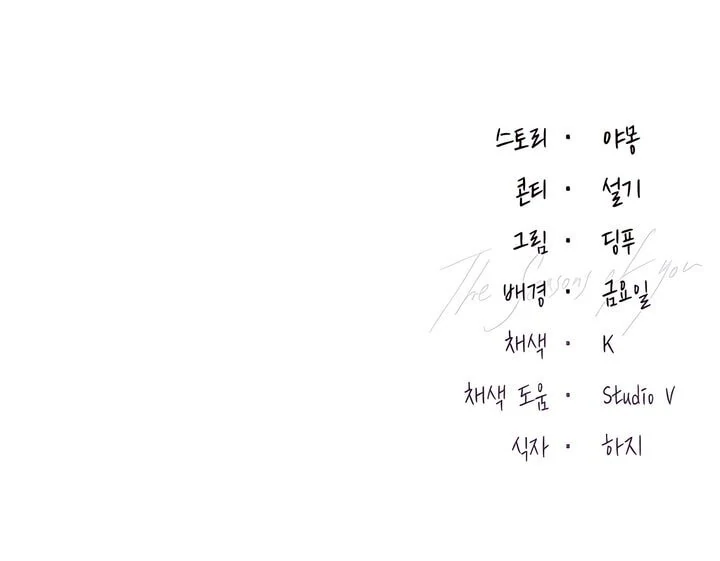 스토리 · 야몽
콘티 · 설기
그림 · 딩푸
The Seasons of you
배경 · 금요일
채색 · K
채색 도움 · Studio V
식자 · 하지